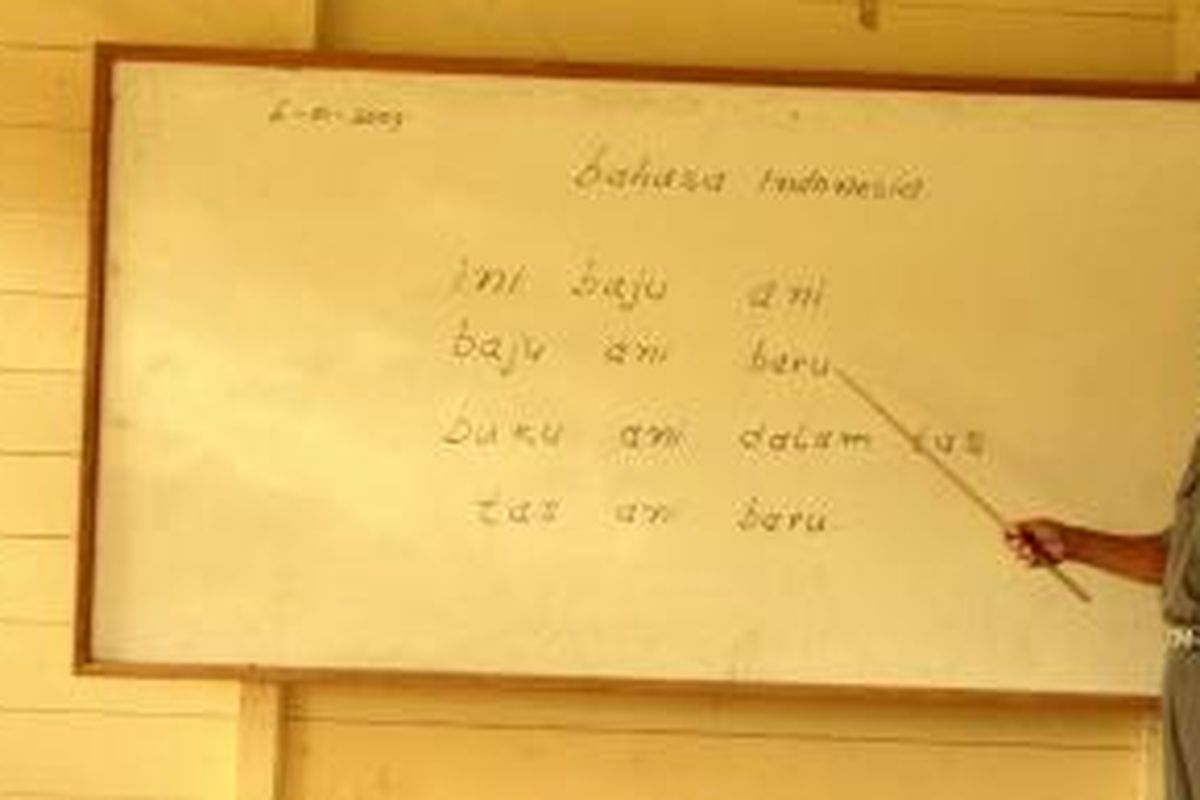 bahasa Indonesia
ini baju ani
baju ani baru
buku ani dalam tas
tas ani baru